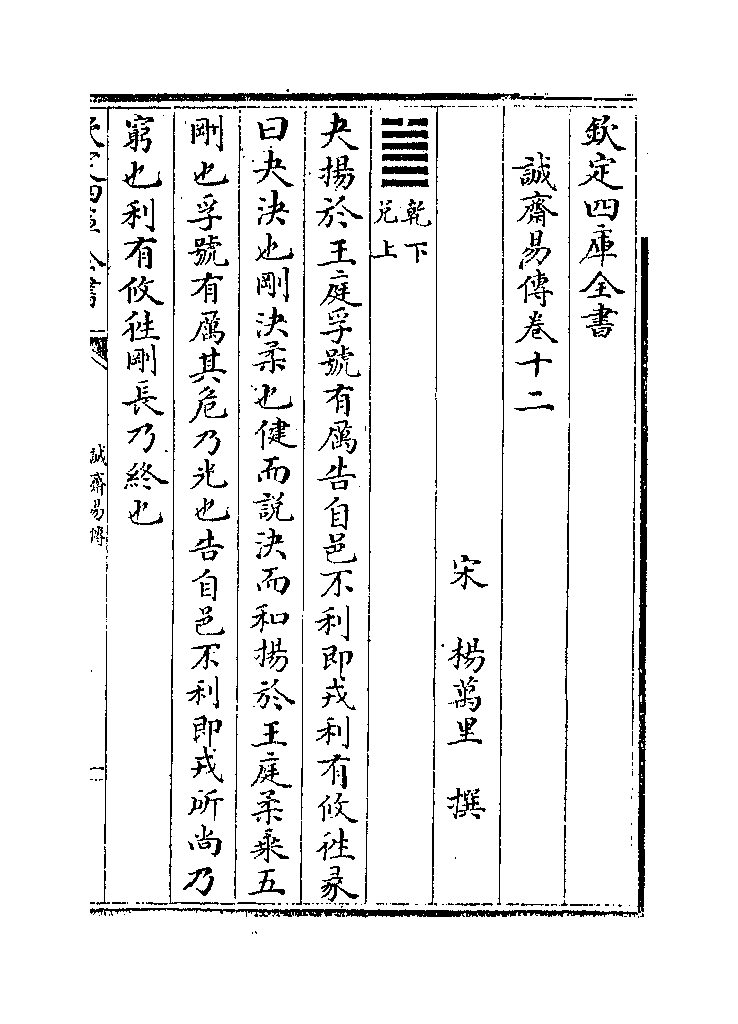 欽定四庫全書
誠齋易傳卷十二
宋　楊萬里　撰
䷪乾下兌上
夬揚於王庭孚號有厲告自邑不利即戎利有攸往彖
曰夬決也剛決柔也健而說決而和揚於王庭柔乘五
剛也孚號有厲其危乃光也告自邑不利即戎所尚乃
窮也利有攸往剛長乃終也
欽定四庫全書
誠齋易傳
一